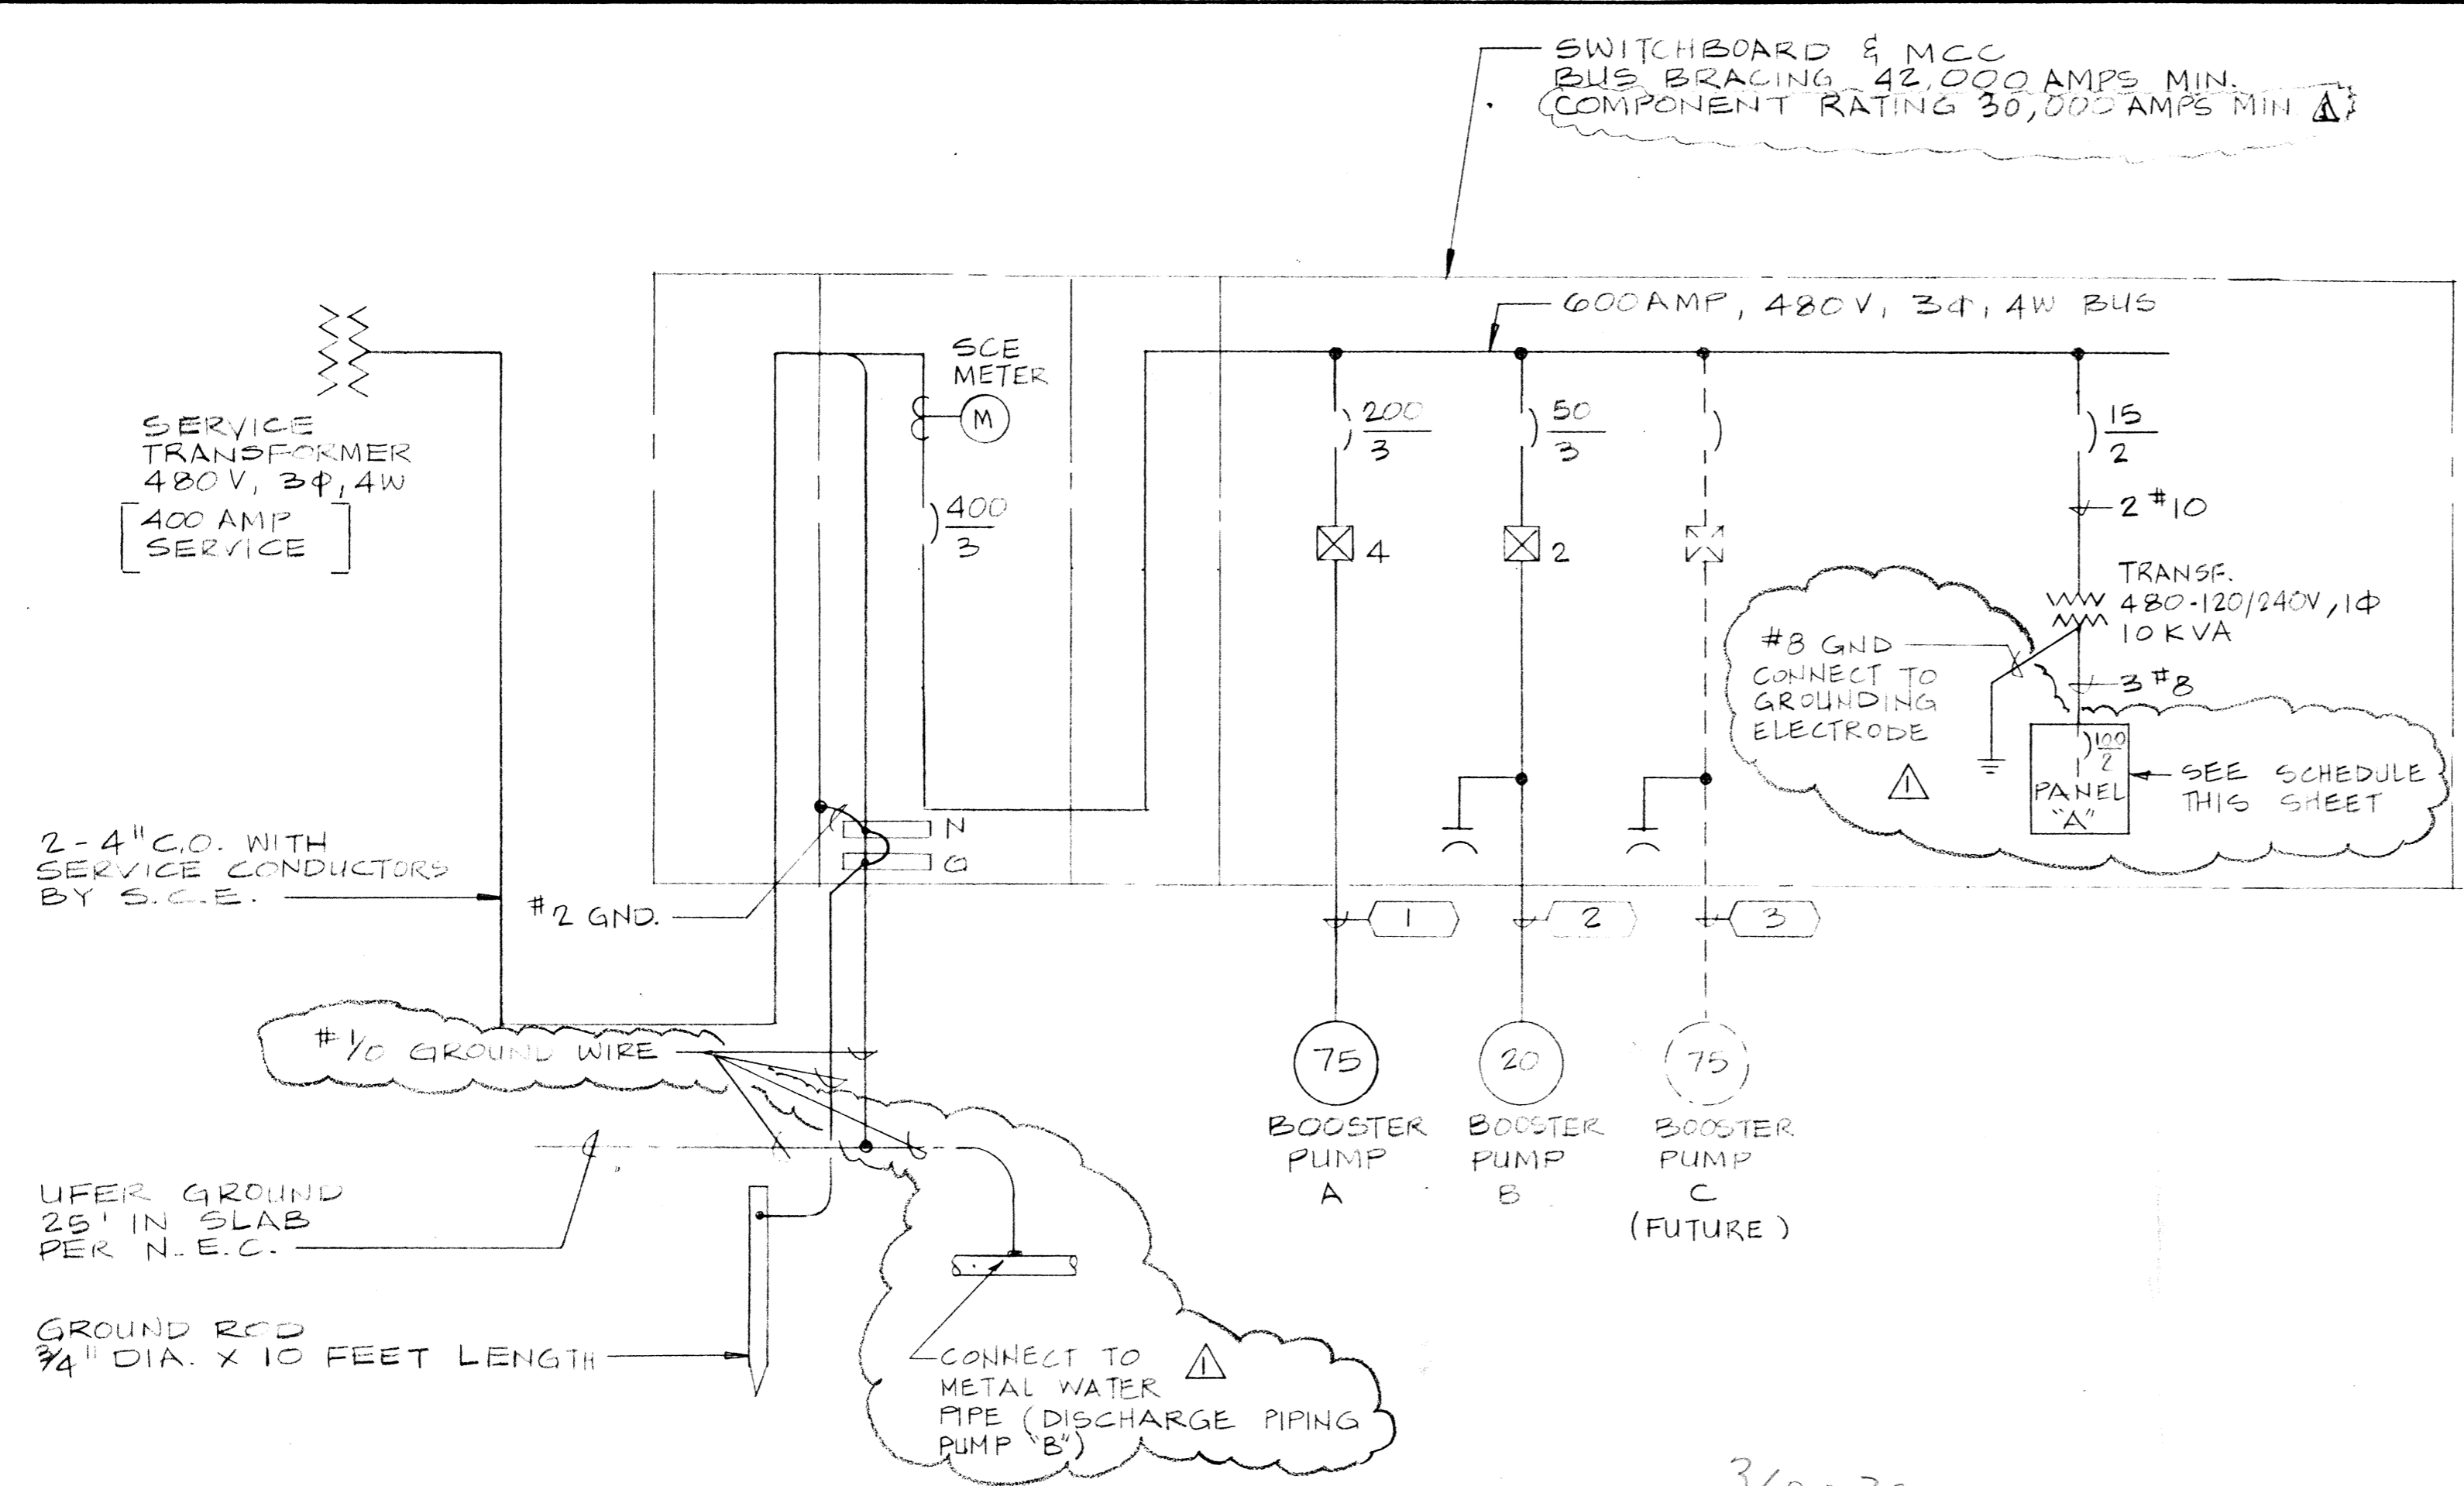 SWITCHBOARD & MCC
BUS BRACING 42,000 AMPS MIN.
COMPONENT RATING 30,000 AMPS MIN 1
600 AMP, 480 V, 3Φ, 4W BUS
SERVICE
TRANSFORMER
480 V, 3Φ, 4W
[400 AMP
SERVICE]
SCE
METER
M
400
3
200
3
50
3
15
2
4
2
2 #10
TRANSF.
480-120/240V, 1Φ
10 KVA
3 #8
#8 GND
CONNECT TO
GROUNDING
ELECTRODE
1
100
2
PANEL
"A"
SEE SCHEDULE
THIS SHEET
N
G
2-4" C.O. WITH
SERVICE CONDUCTORS
BY S.C.E.
#2 GND.
1
2
3
#1/0 GROUND WIRE
75
20
75
BOOSTER
PUMP
A
BOOSTER
PUMP
B
BOOSTER
PUMP
C
(FUTURE)
UFER GROUND
25' IN SLAB
PER N.E.C.
GROUND ROD
3/4" DIA. X 10 FEET LENGTH
CONNECT TO
METAL WATER
PIPE (DISCHARGE PIPING
PUMP "B")
1